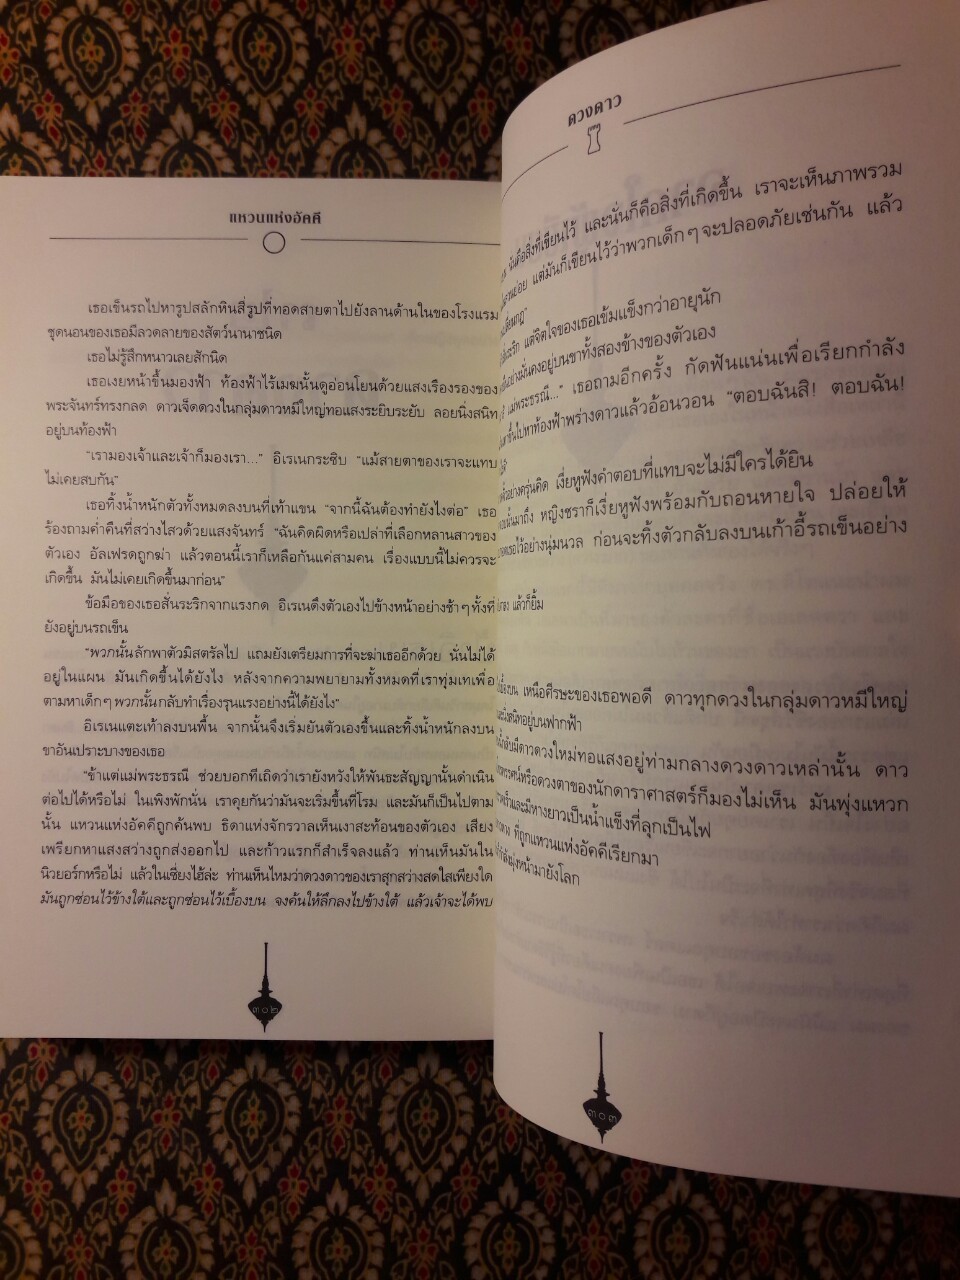 แหวนแห่งอัคคี
เธอเข็นรถไปหารูปสลักหินสี่รูปที่ทอดสายตาไปยังลานด้านในของโรงแรม
ชุดนอนของเธอมีลวดลายของสัตว์นานาชนิด
เธอไม่รู้สึกหนาวเลยสักนิด
เธอเงยหน้าขึ้นมองฟ้า ท้องฟ้าไร้เมฆนั้นดูอ่อนโยนด้วยแสงเรืองรองของ
พระจันทร์ทรงกลด ดาวเจ็ดดวงในกลุ่มดาวหมีใหญ่ทอแสงระยิบระยับ ลอยนิ่งสนิท
อยู่บนท้องฟ้า
"เรามองเจ้าและเจ้าก็มองเรา..." อิเรเนกระซิบ "แม้สายตาของเราจะแทบ
ไม่เคยสบกัน"
เธอทิ้งน้ำหนักตัวทั้งหมดลงบนที่เท้าแขน "จากนี้ฉันต้องทำยังไงต่อ" เธอ
ร้องถามค่ำคืนที่สว่างไสวด้วยแสงจันทร์ "ฉันคิดผิดหรือเปล่าที่เลือกหลานสาวของ
ตัวเอง อัลเฟรดถูกฆ่า แล้วตอนนี้เราก็เหลือกันแค่สามคน เรื่องแบบนี้ไม่ควรจะ
เกิดขึ้น มันไม่เคยเกิดขึ้นมาก่อน"
ข้อมือของเธอสั่นระริกจากแรงกด อิเรเนดึงตัวเองไปข้างหน้าอย่างช้าๆ ทั้งที่
ยังอยู่บนรถเข็น
"พวกนั้นลักพาตัวมิสตรัลไป แถมยังเตรียมการที่จะฆ่าเธออีกด้วย นั่นไม่ได้
อยู่ในแผน มันเกิดขึ้นได้ยังไง หลังจากความพยายามทั้งหมดที่เราทุ่มเทเพื่อ
ตามหาเด็กๆ พวกนั้นกลับทำเรื่องรุนแรงอย่างนี้ได้ยังไง"
อิเรเนแตะเท้าลงบนพื้น จากนั้นจึงเริ่มยันตัวเองขึ้นและทิ้งน้ำหนักลงบน
ขาอันเปราะบางของเธอ
"ข้าแต่แม่พระธรณี ช่วยบอกทีเถิดว่าเรายังหวังให้พันธะสัญญานั้นดำเนิน
ต่อไปได้หรือไม่ ในเพิงพักนั่น เราคุยกันว่ามันจะเริ่มขึ้นที่โรม และมันก็เป็นไปตาม
นั้น แหวนแห่งอัคคีถูกค้นพบ ธิดาแห่งจักรวาลเห็นเงาสะท้อนของตัวเอง เสียง
เพรียกหาแสงสว่างถูกส่งออกไป และก้าวแรกก็สำเร็จลงแล้ว ท่านเห็นมันใน
นิวยอร์กหรือไม่ แล้วในเซี่ยงไฮ้ล่ะ ท่านเห็นไหมว่าดวงดาวของเราสุกสว่างสดใสเพียงใด
มันถูกซ่อนไว้ข้างใต้และถูกซ่อนไว้เบื้องบน จงค้นให้ลึกลงไปข้างใต้ แล้วเจ้าจะได้พบ
๓๐๒
ดวงดาว
นั่นคือสิ่งที่เขียนไว้ และนั่นก็คือสิ่งที่เกิดขึ้น เราจะเห็นภาพรวม
แต่มันก็เขียนไว้ว่าพวกเด็กๆ จะปลอดภัยเช่นกัน แล้ว
แต่จิตใจของเธอเข้มแข็งกว่าอายุนัก
อย่างมั่นคงอยู่บนขาทั้งสองข้างของตัวเอง
แม่พระธรณี..." เธอถามอีกครั้ง กัดฟันแน่นเพื่อเรียกกำลัง
ขึ้นไปหาท้องฟ้าพร่างดาวแล้วอ้อนวอน "ตอบฉันสิ! ตอบฉัน!
อย่างครุ่นคิด เงี่ยหูฟังคำตอบที่แทบจะไม่มีใครได้ยิน
นั้นมาถึง หญิงชราก็เงี่ยหูฟังพร้อมกับถอนหายใจ ปล่อยให้
เธอไว้อย่างนุ่มนวล ก่อนจะทิ้งตัวกลับลงบนเก้าอี้รถเข็นอย่าง
แล้วก็ยิ้ม
เหนือศีรษะของเธอพอดี ดาวทุกดวงในกลุ่มดาวหมีใหญ่
สนิทอยู่บนฟากฟ้า
กลับมีดาวดวงใหม่ทอแสงอยู่ท่ามกลางดวงดาวเหล่านั้น ดาว
หรือดวงตาของนักดาราศาสตร์ก็มองไม่เห็น มันพุ่งแหวก
และมีหางยาวเป็นน้ำแข็งที่ลุกเป็นไฟ
ที่ถูกแหวนแห่งอัคคีเรียกมา
มุ่งหน้ามายังโลก
๓๐๓